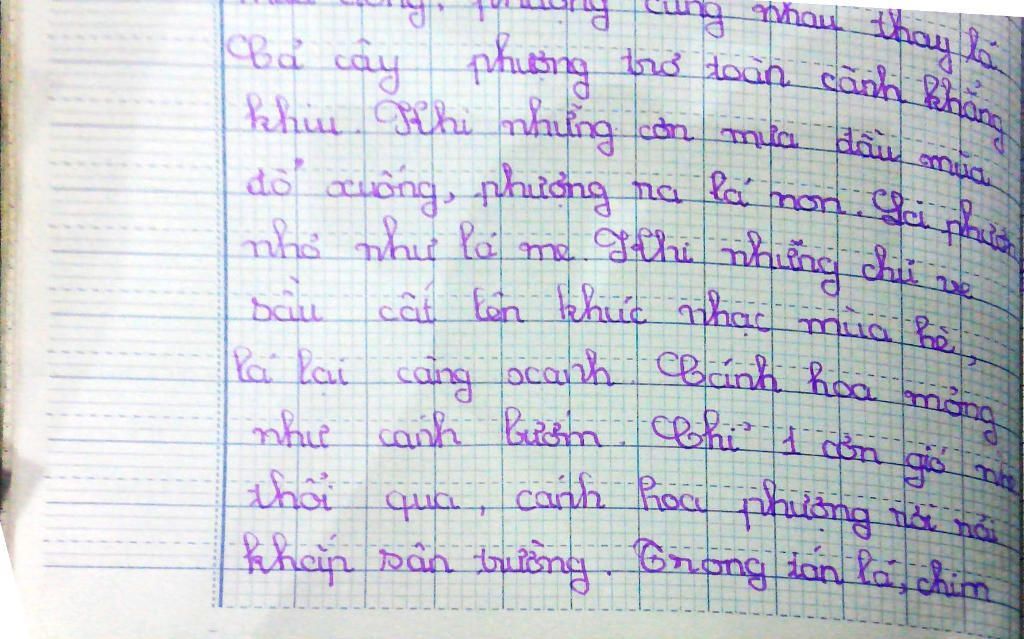 đông, phượng cùng nhau thay lá
Cả cây phượng trơ toàn cành khẳng
khiu. Khi những cơn mưa đầu mùa
đổ xuống, phượng ra lá non. Lá phượn
nhỏ như lá me. Khi những chú ve
sầu cất lên khúc nhạc mùa hè,
lá lại càng xanh. Cánh hoa mỏng
như cánh bướm. Chỉ 1 cơn gió nhẹ
thổi qua, cánh hoa phượng rơi rơi
khắp sân trường. Trong tán lá, chim